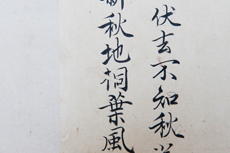 伏去不知秋
新秋地桐葉風